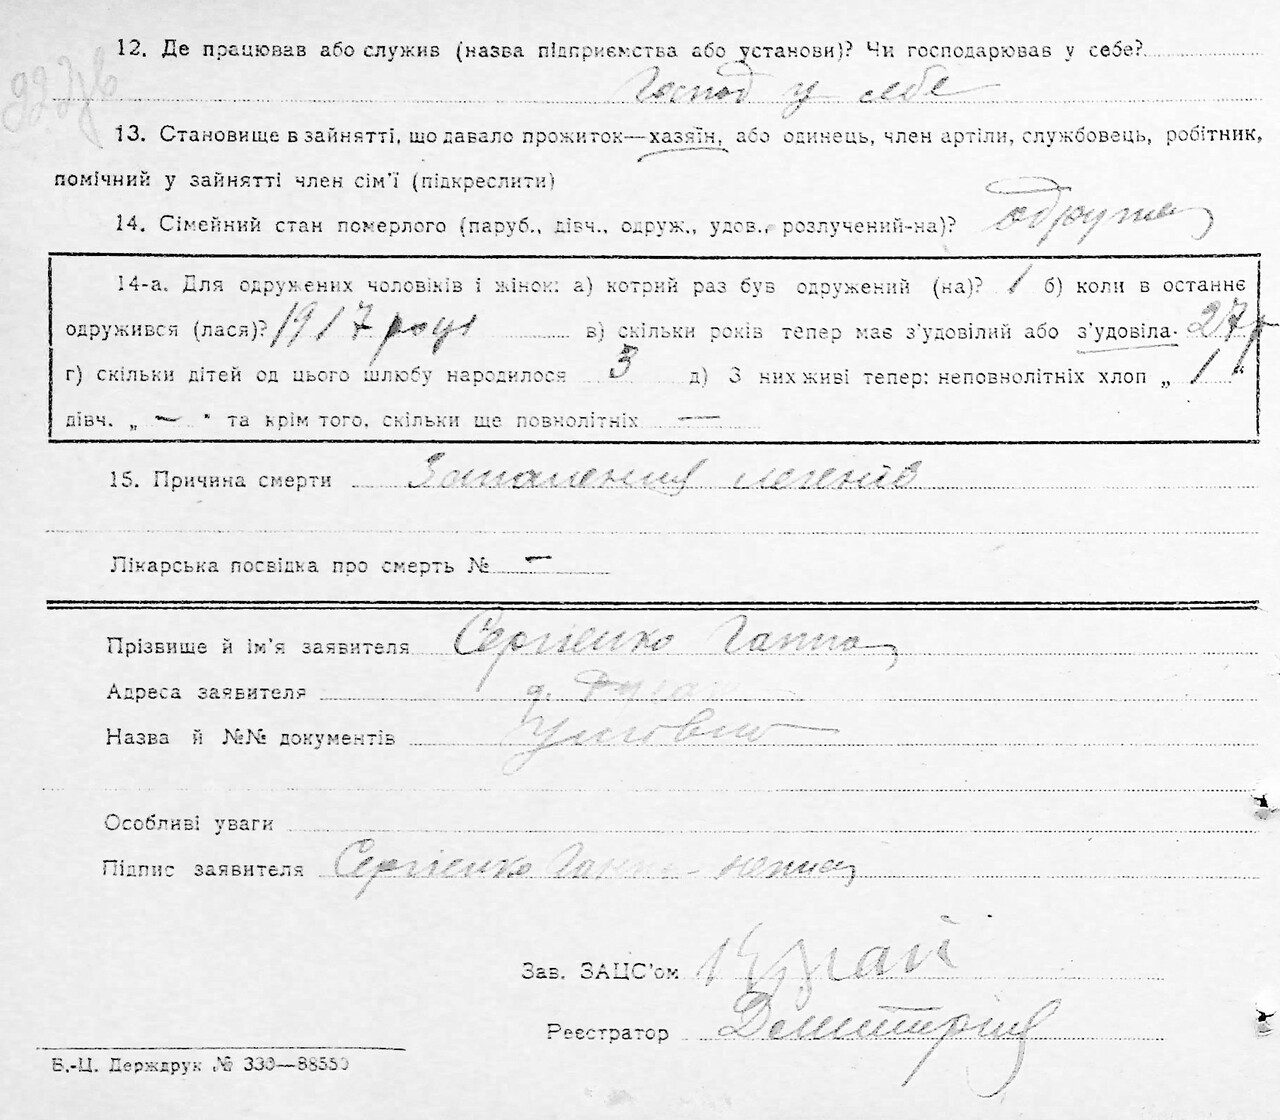 12. Де працював або служив (назва підприємства або установи)? Чи господарював у себе?
Господ у себе
13. Становище в зайнятті, що давало прожиток—хазяїн, або одинець, член артіли, службовець, робітник,
помічний у зайнятті член сім'ї (підкреслити)
14. Сімейний стан померлого (паруб., дівч., одруж., удов., розлучений-на)?
14-а. Для одружених чоловіків і жінок: а) котрий раз був одружений (на)? 1 б) коли в останнє
одружився (лася)? 1917 році в) скільки років тепер має з'удовілий або з'удовіла- 27 р
г) скільки дітей од цього шлюбу народилося 3 д) З них живі тепер: неповнолітніх хлоп „ 1 "
дівч. „ — " та крім того, скільки ще повнолітніх —
15. Причина смерти Запалення легенів
Лікарська посвідка про смерть № —
Прізвище й ім'я заявителя Сергієнко Ганна
Адреса заявителя
Назва й №№ документів Умовно
Особливі уваги
Підпис заявителя Сергієнко Ганна - неписм
Зав. ЗАЦС'ом
Реєстратор
Б.-Ц. Держдрук № 333—88550